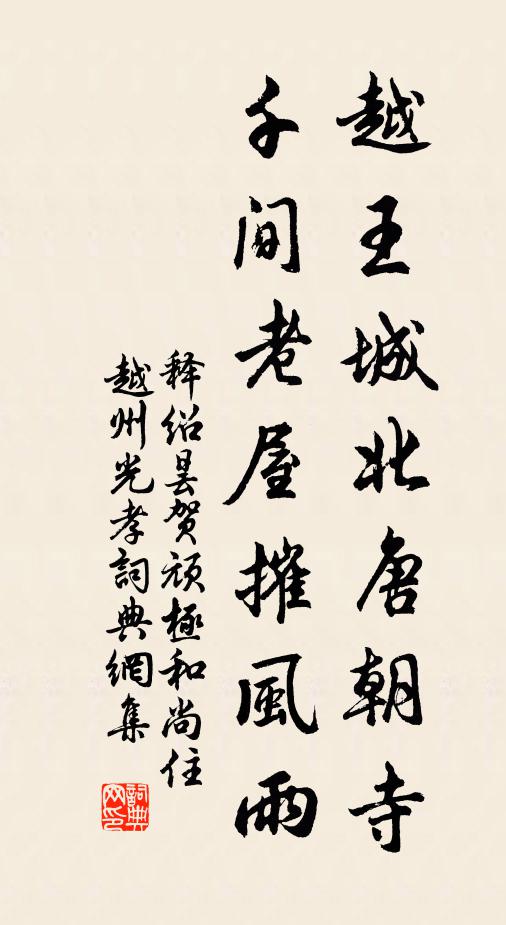 越王城北唐朝寺
千间老屋摧風雨
释绍昙贺頑極和尚住
越州光孝詞典網集
詞典
网印